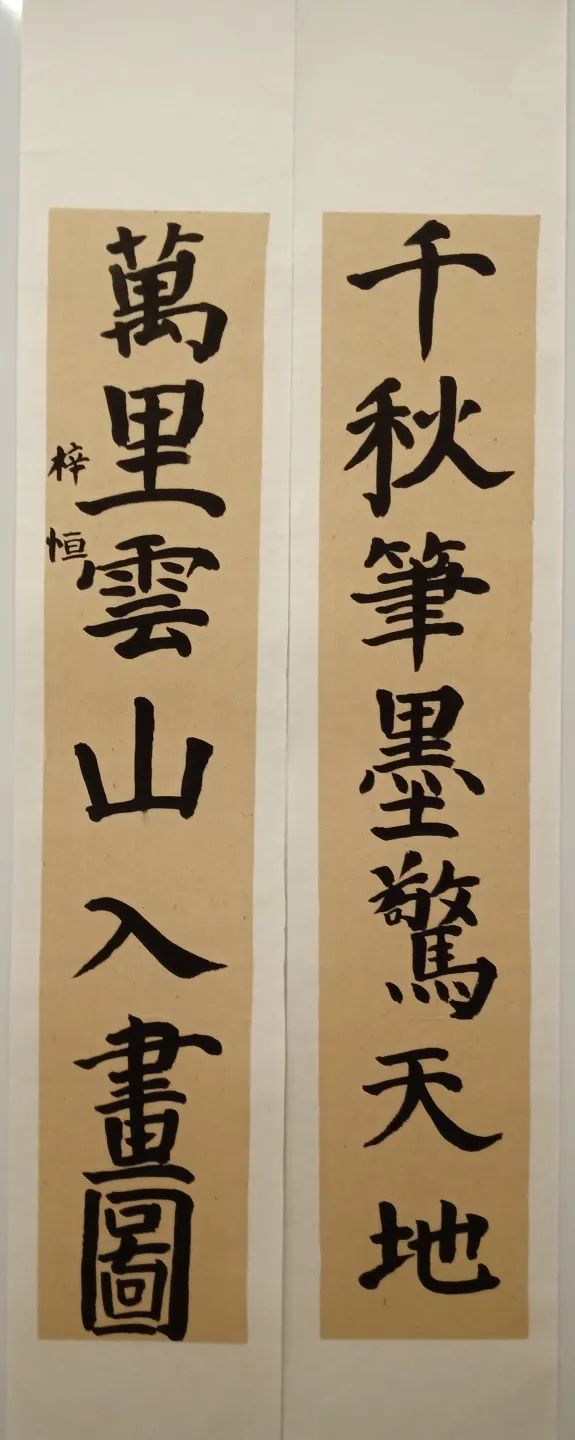 千秋筆墨驚天地
萬里雲山入畫圖
梓恒